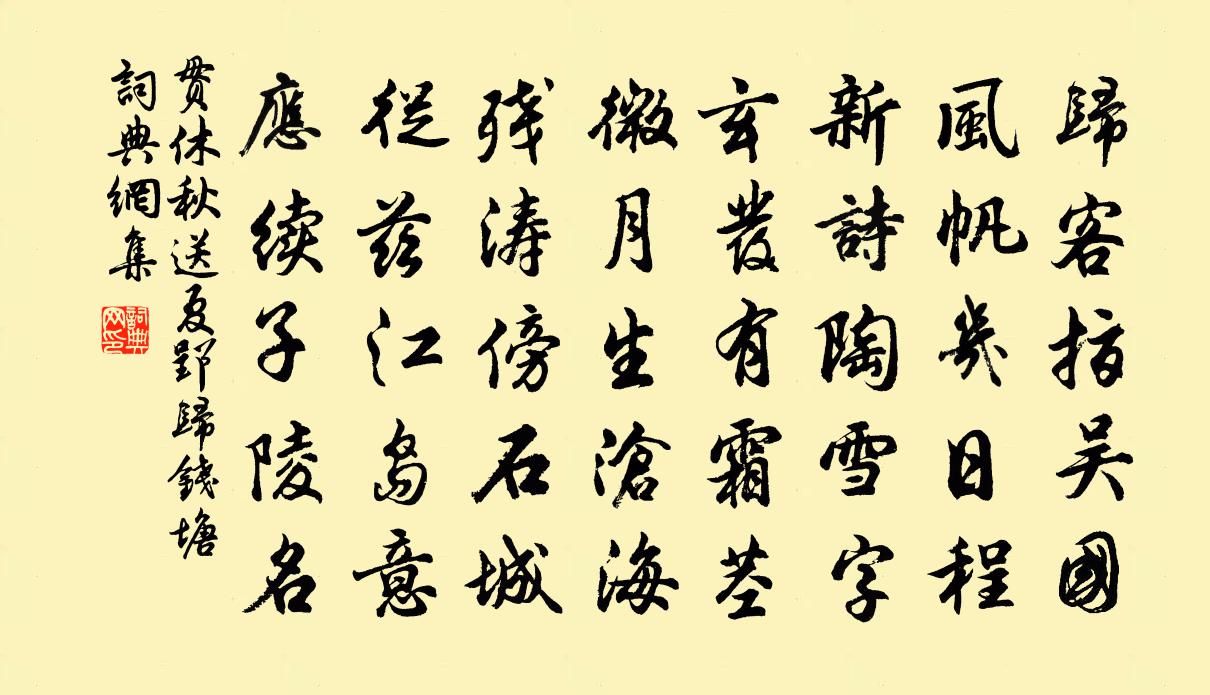 歸客指吴國
風帆幾日程
新詩陶雪字
玄發有霜茎
微月生滄海
残涛傍石城
從兹江島意
應续子陵名
貫休秋送夏郢歸錢塘
詞典網集
詞典网印